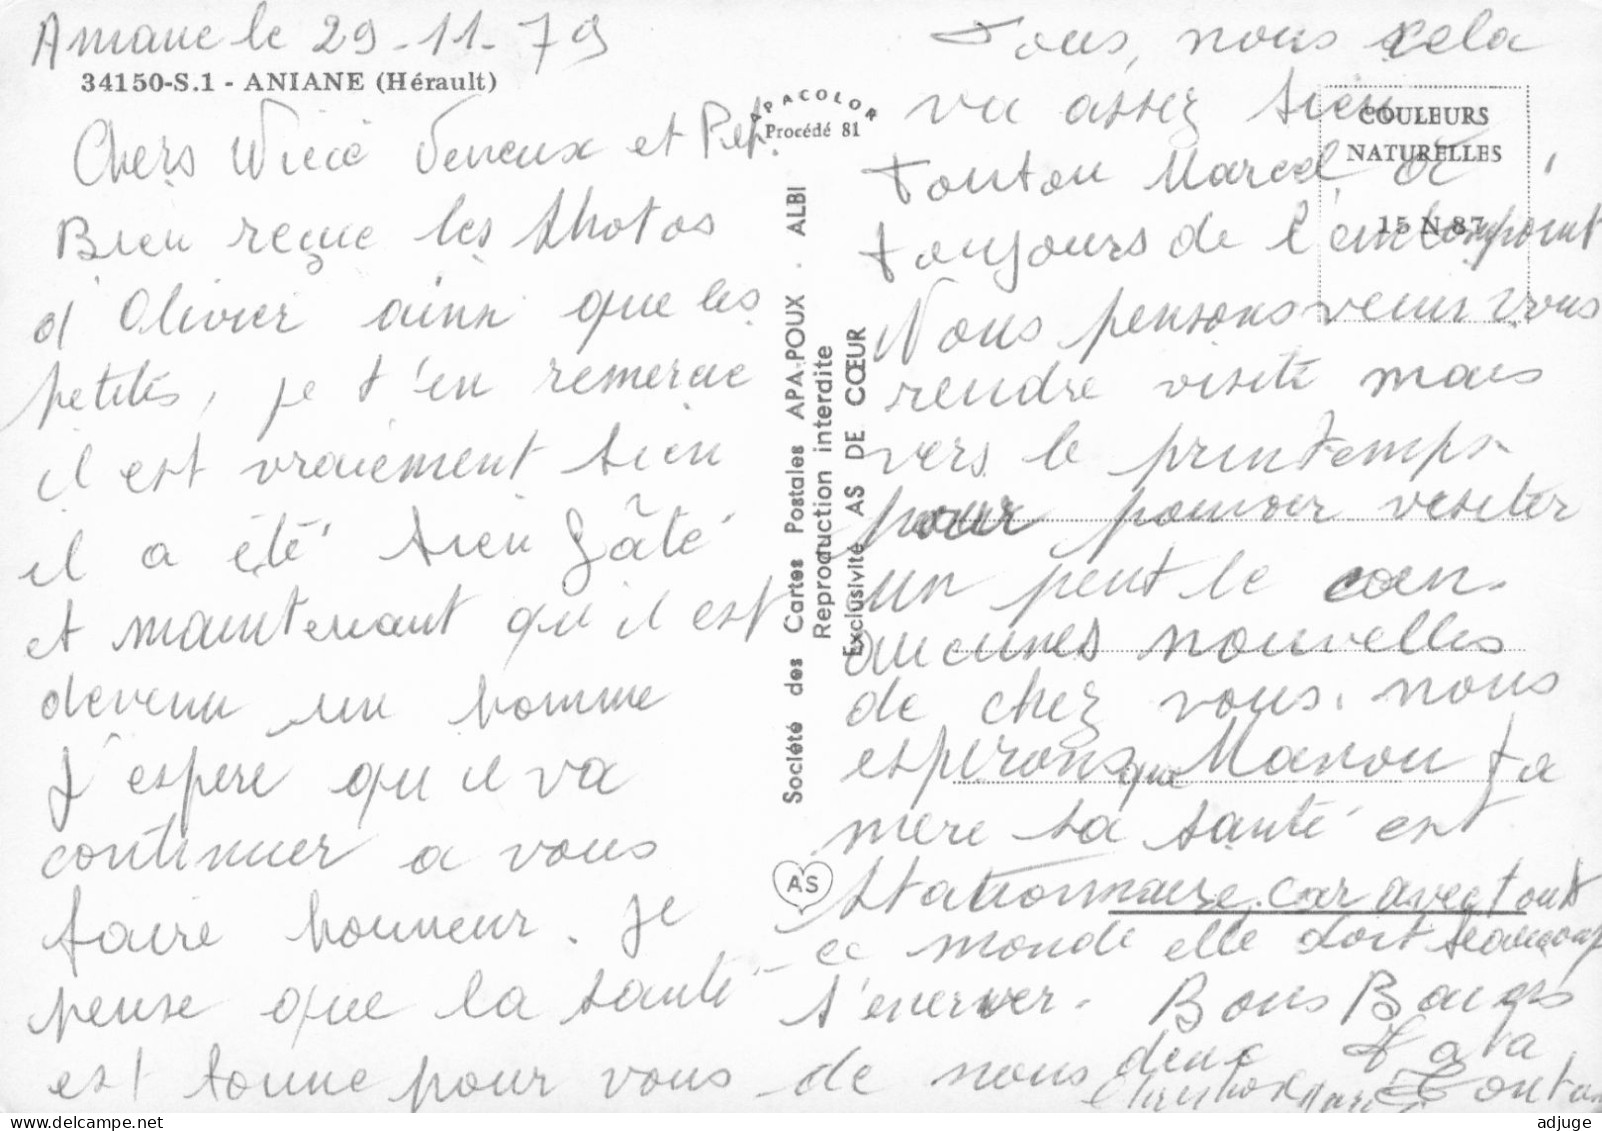 Aniane le 29-11-79
34150-S.1 - ANIANE (Hérault)
Chers et
Bien reçue les photos
d'Olivier ainsi que les
petites, je t'en remercie
il est vraiement bien
il a été bien gâté
et maintenant qu'il est
devenu un homme
J'espère qu'il va
continuer a vous
faire honneur. Je
pense que la santé
est bonne pour vous
APACOLOR
Procédé 81
Société des Cartes Postales APA-POUX - ALBI
Reproduction interdite
Exclusivité AS DE CŒUR
AS
COULEURS
NATURELLES
15 N 87
Tous, nous cela
va assez bien
Tonton Marcel
toujours de l'embompoint
Nous pensons venir vous
rendre visite mais
vers le printemps
pour pouvoir visiter
un peut le coin.
aucunes nouvelles
de chez vous. nous
esperons que Manou ta
mère sa santé est
stationnaire. car avec tout
ce monde elle doit beaucoup
s'enerver. Bons Baisers
de nous deux Tata
Tonton
adjuge.com